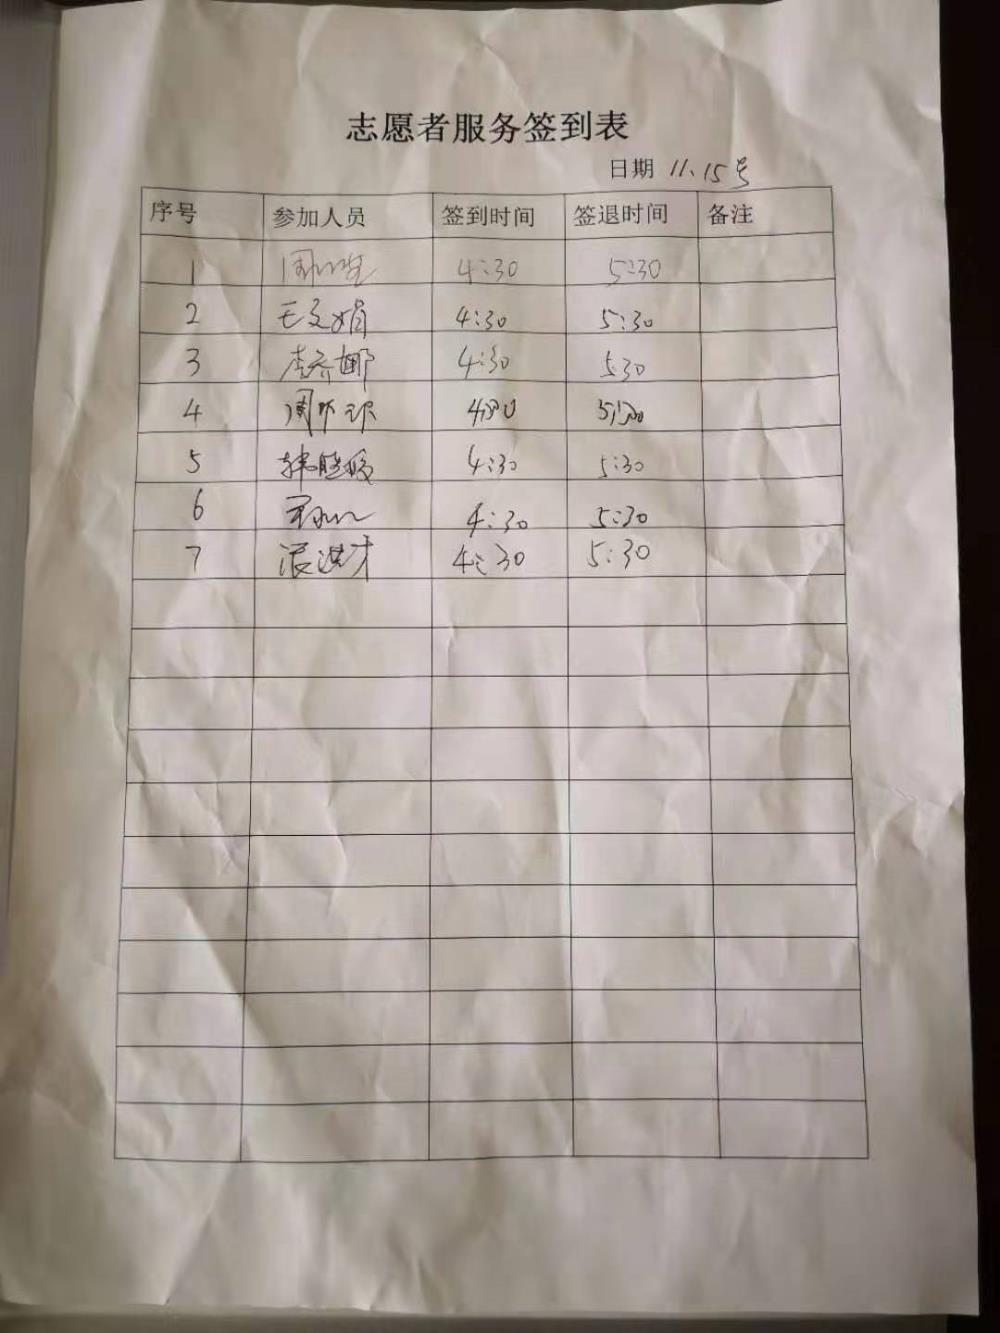 志愿者服务签到表
日期 11.15号
序号 参加人员 签到时间 签退时间 备注
1 4:30 5:30
2 王文娟 4:30 5:30
3 李乔娜 4:30 530
4 4:30 5:30
5 韩晓媛 4:30 5:30
6 4:30 5:30
7 4:30 5:30